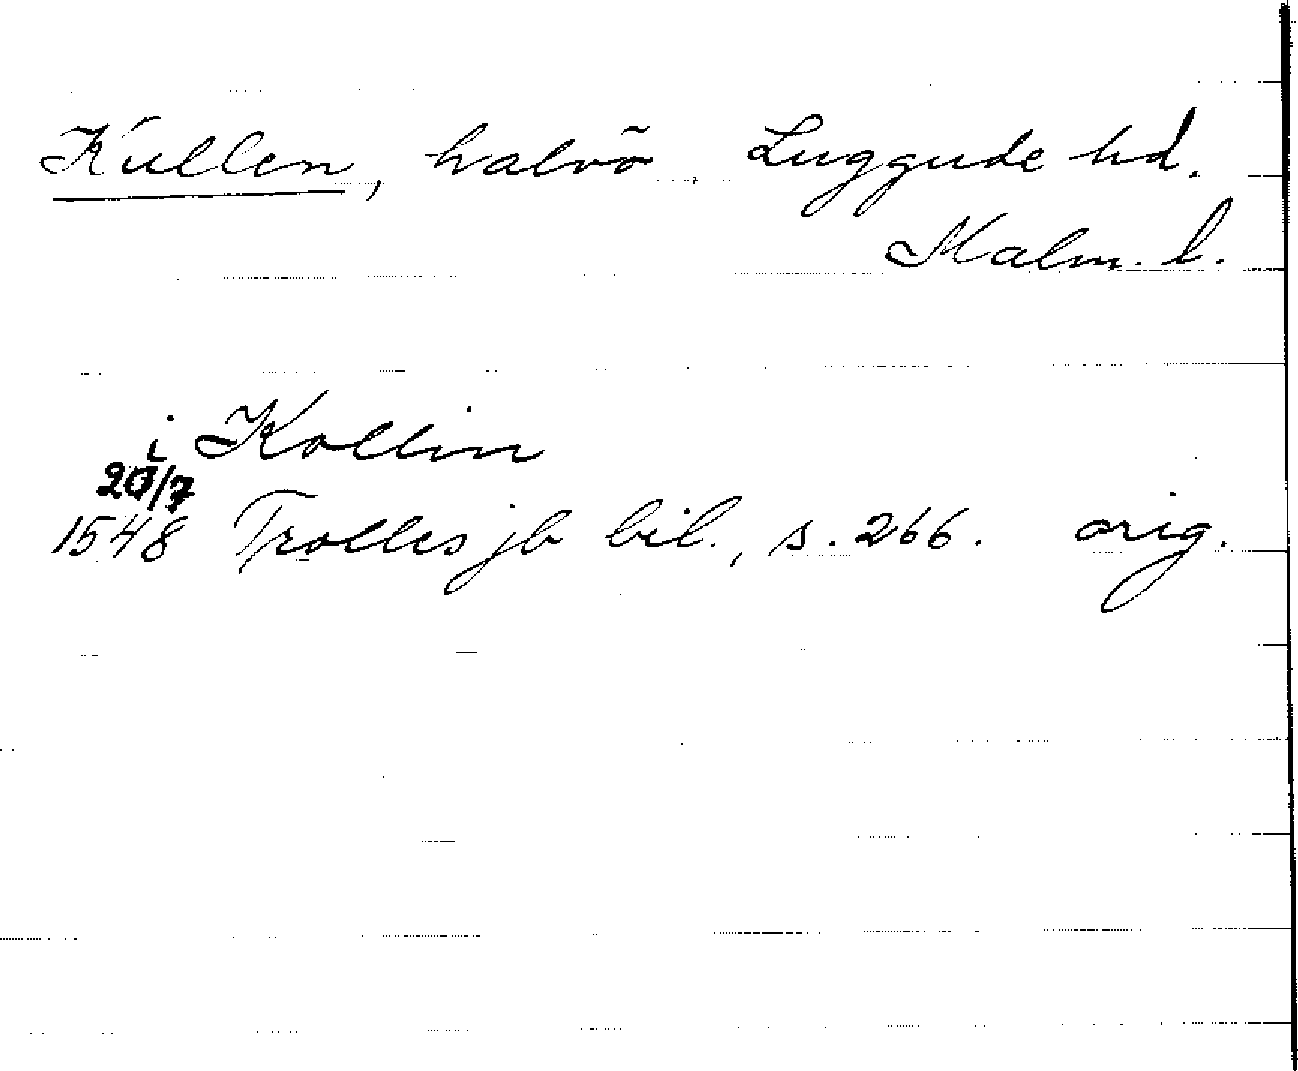 Kullen, halvö, Luggude hd.
Malm. l.
i Kollin
20/7
1548 Trolles jb bil., s. 266. orig.